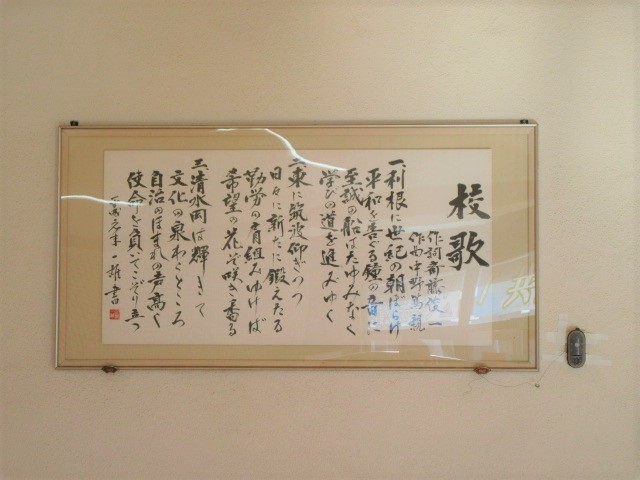 校歌
作詞 斎藤俊一
作曲 中野
一、利根に世紀の朝ぼらけ
平和を告ぐる鐘の音に
至誠の船はたゆみなく
学びの道を進みゆく
二、東に筑波仰ぎつつ
日々に新たに鍛えたる
勤労の肩組みゆけば
希望の花ぞ咲き薫る
三、清水岡は輝きて
文化の泉わくところ
自治のほまれの声高く
使命を負いてこぞり立つ
一雄書